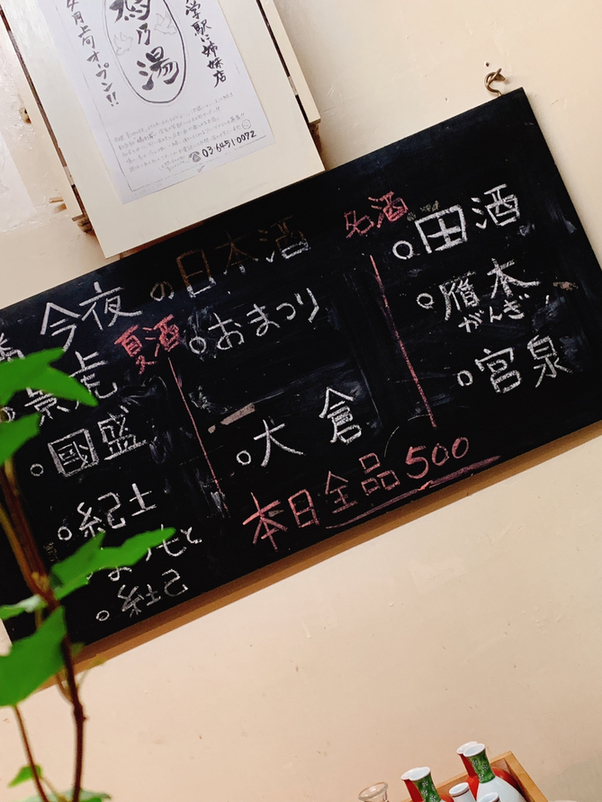 学駅に姉妹店
乃湯
4月上旬オープン!!
☎03-6451-0072
今夜の日本酒
夏酒
景虎
○國盛
○紀土
○紀土
○おまつり
○大倉
名酒
○田酒
○雁木
がんぎ
○宮泉
本日全品500